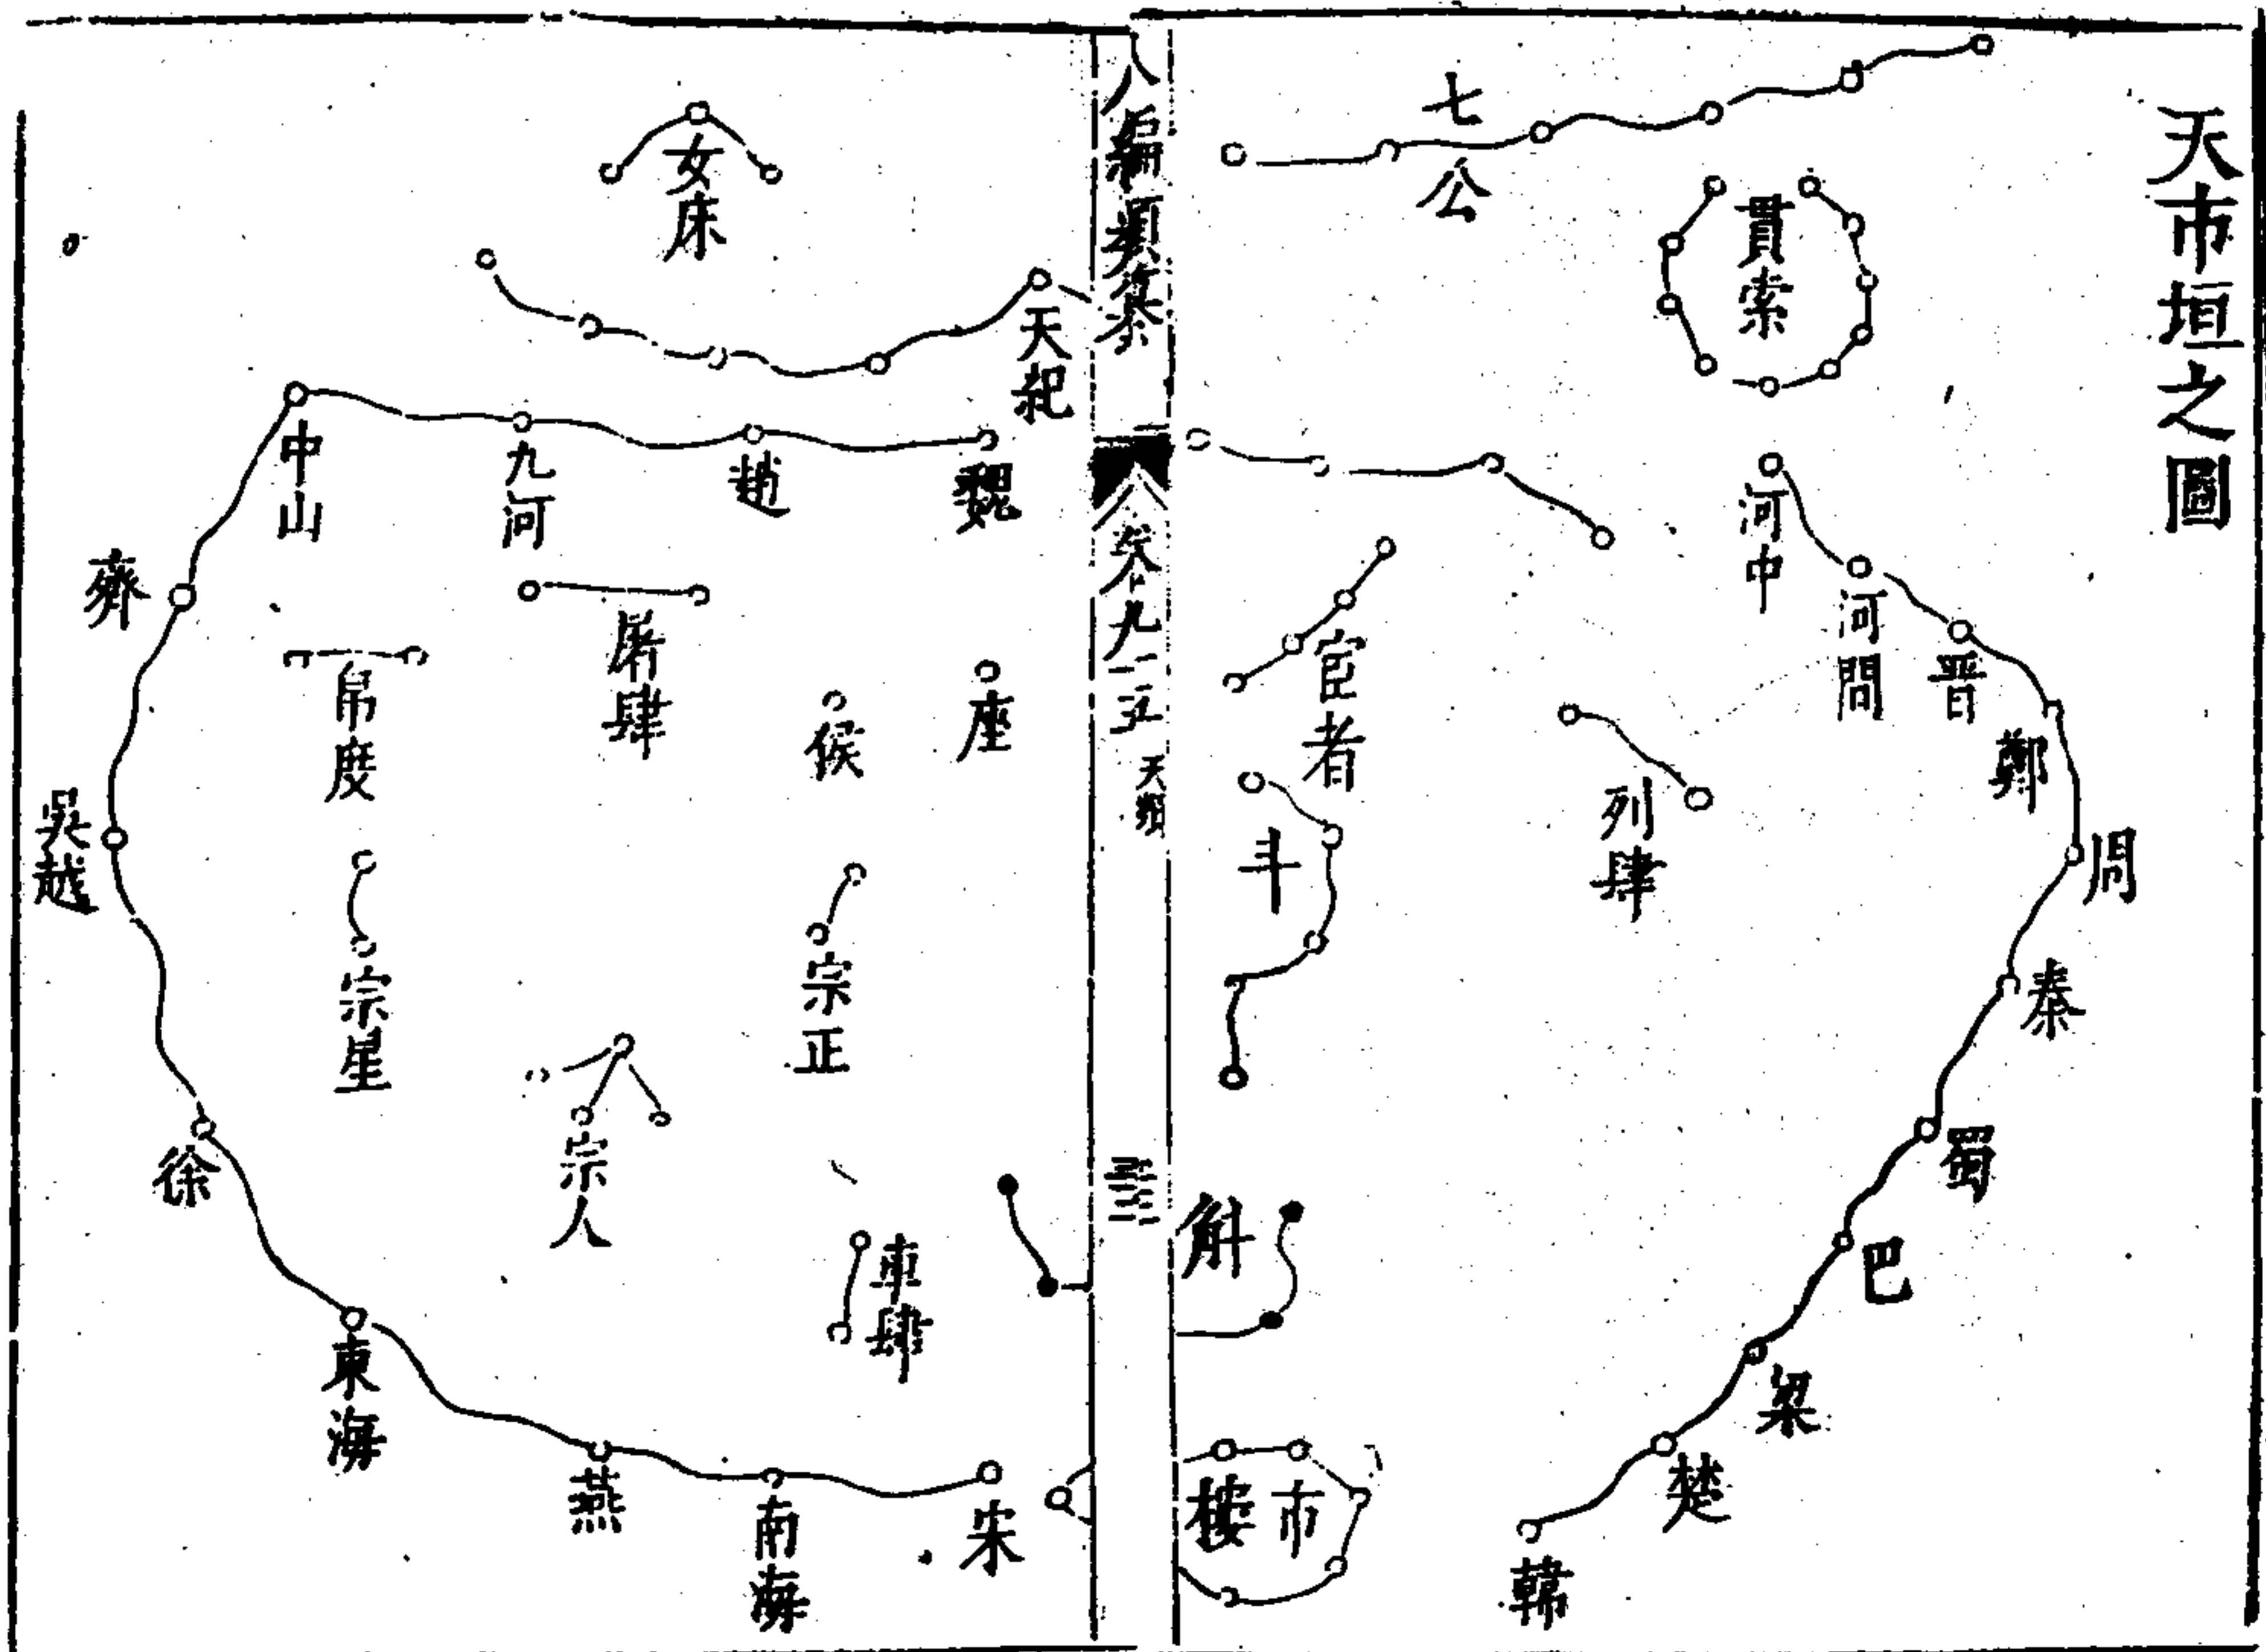 天市垣之圖
七公
貫索
河中
河間
晋
鄭
周
秦
蜀
巴
梁
楚
韓
列肆
宦者
斗
斛
市
楼
八編類纂
卷九二五
天類
女床
天紀
魏
趙
九河
中山
齊
吳越
徐
東海
燕
南海
宋
屠肆
帛度
候
座
宗正
宗星
宗人
車肆